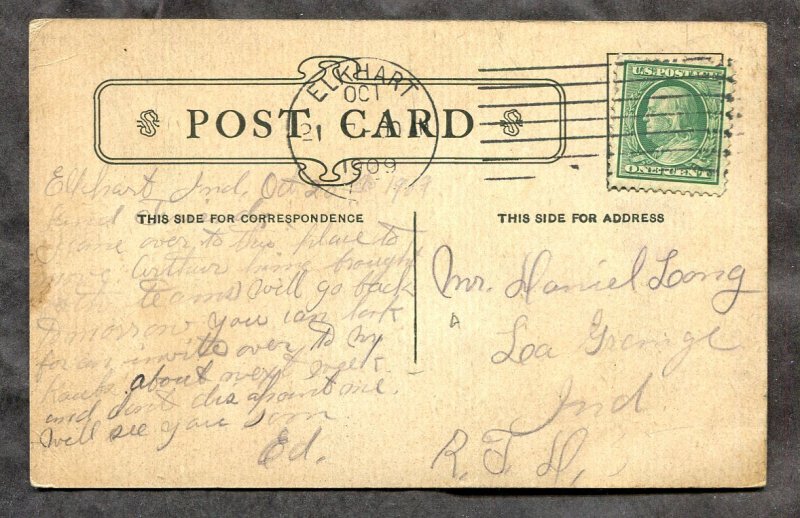 ELKHART
OCT
21
1909
POST CARD
U.S. POSTAGE
ONE CENT
THIS SIDE FOR CORRESPONDENCE
THIS SIDE FOR ADDRESS
Elkhart Ind. Oct 1909
friend
came over to this place to
move Arthur him brought
teams will go back
tomorrow you can look
for an invite over to my
house about next week
and dont disapoint me.
Will see you soon
Ed.
Mr. Daniel Long
La Grange
Ind.
R. F. D.